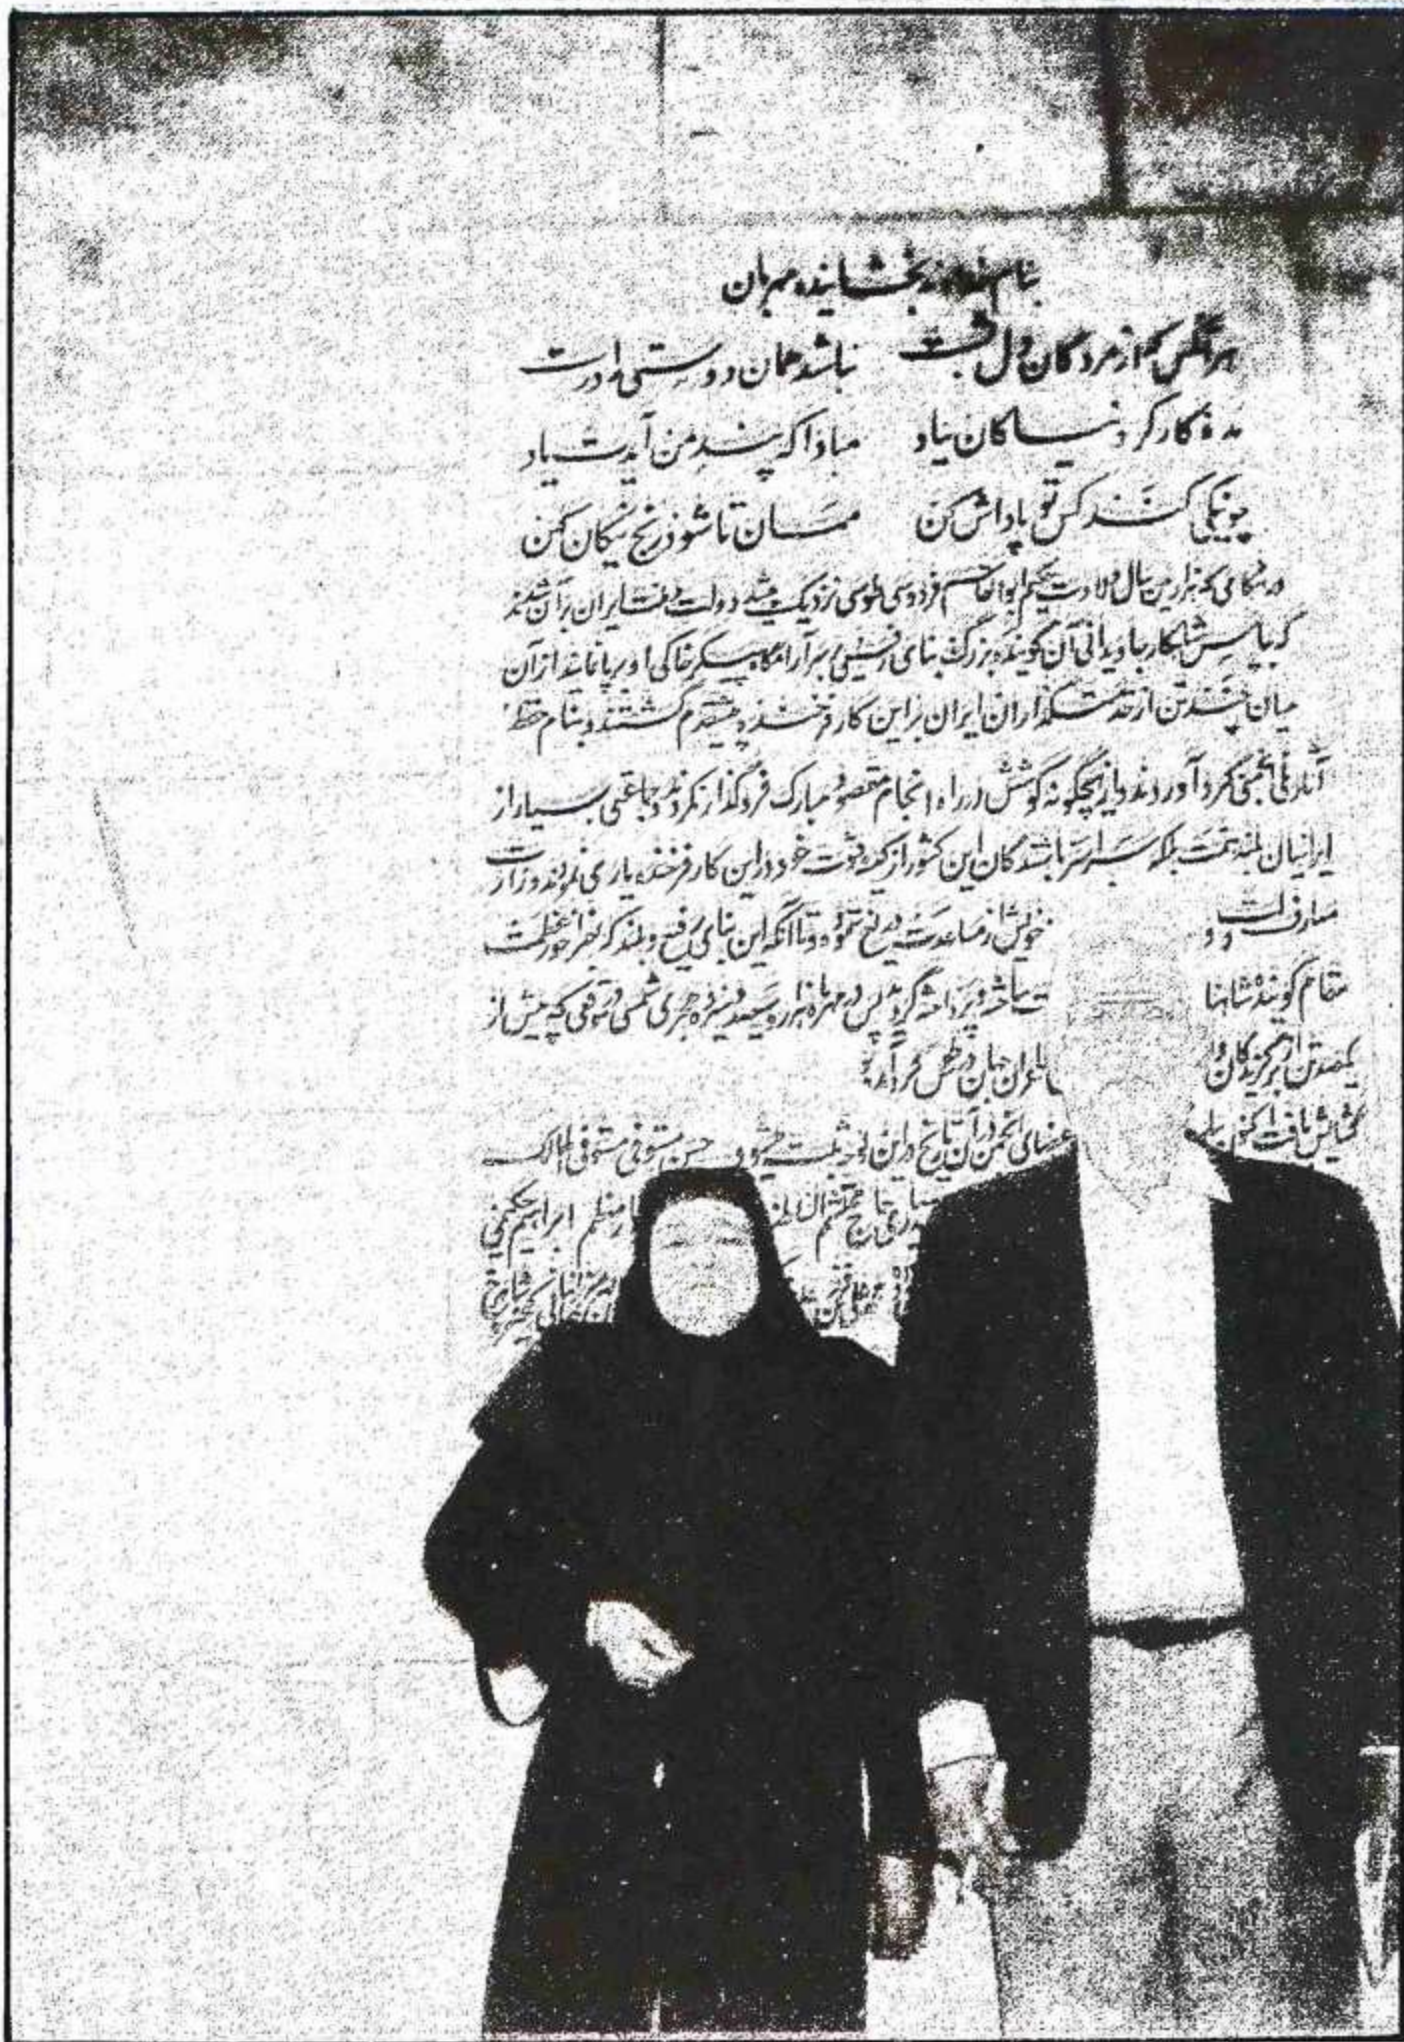 بنام خداوند بخشاینده مهربان
هر آنکس که از مردگان دل بشست نباشد همان دوستی را درست
مده کارکرد نیاکان بباد مبادا که پند من آیدت یاد
چو نیکی کند کس تو پاداش کن ممان تا شود رنج نیکان کهن
در هنگامی که هزارمین سال ولادت حکیم ابوالقاسم فردوسی طوسی نزدیک میشد دولت و ملت ایران بر آن شدند
که بپاس شاهکار جاویدانی آن گوینده بزرگ بنای رفیعی بر آرامگاه پیکر خاکی او برپا نمایند از آن
میان چند تن از خدمتگذاران ایران بر این کار فرخنده پیشقدم گشتند و بنام حفظ
آثار ملی انجمنی گرد آوردند و از هیچگونه کوشش در راه انجام مقصود مبارک فروگذار نکردند و جماعتی بسیار از
ایرانیان بلند همت بلکه سراسر باشندگان این کشور از کد قوت خود در این کار فرخنده یاری نمودند وزارت
معارف خویش از مساعدت دریغ ننمود و تا آنکه این بنای رفیع و بلند که فراخور عظمت
مقام گوینده شاهنا ساخته و پرداخته گردید پس در مهر ماه هزار و سیصد و سیزده هجری شمسی در موقعی که بیش از
یکصد تن از برگزیدگان جهان در طوس گرد آمدند
گشایش یافت اکنون اعضای انجمن در آن تاریخ در این لوحه ثبت میشود حسن مستوفی مستوفی الممالک
حاج محتشم السلطنه ابراهیم حکیمی